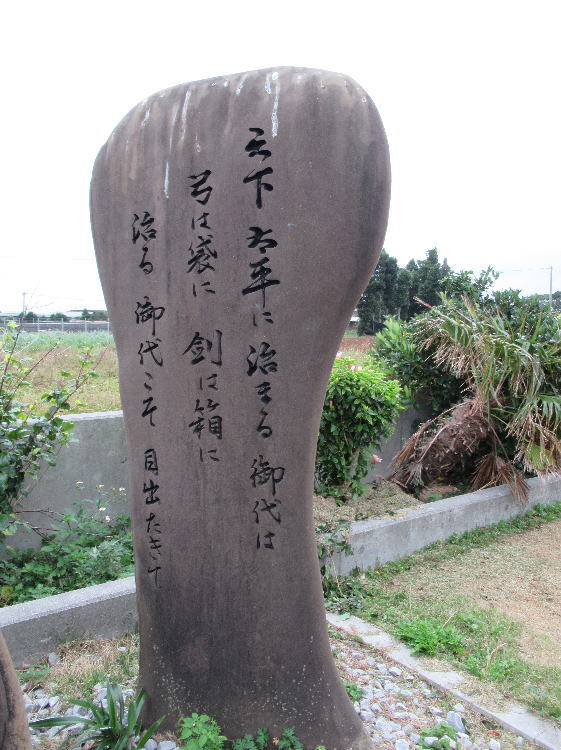 天下 太平に 治まる 御代は
弓は袋に 剣は箱に
治る 御代こそ 目出たき